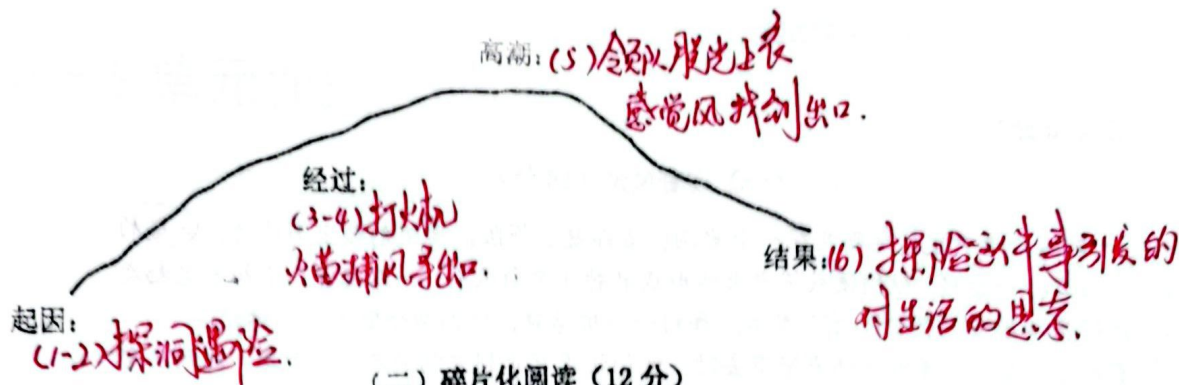 高潮：(5)领队脱光上衣
感觉风找到出口.
经过：
(3-4)打火机
火苗捕风寻出口.
结果：(6).探险这件事引发的
对生活的思考.
起因：
(1-2)探洞遇险.
(二) 碎片化阅读（12分）